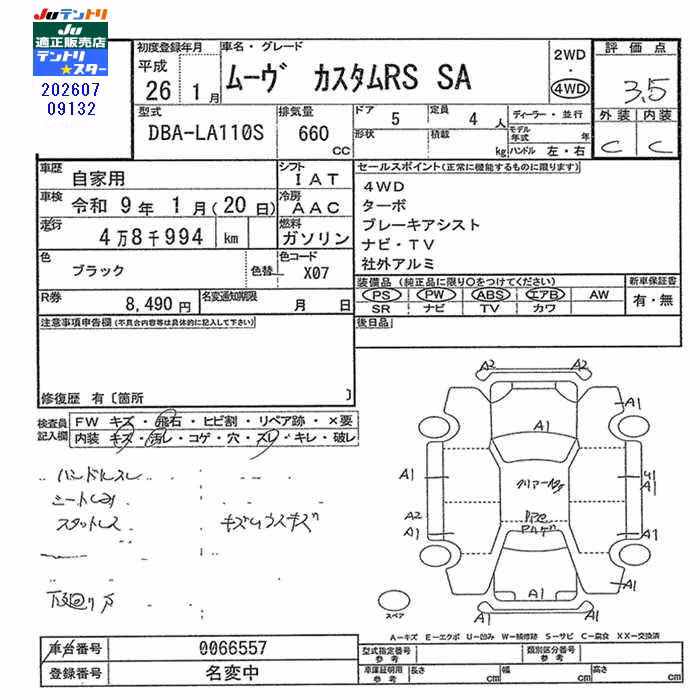 JUテントリ
JU
適正販売店
テントリ
★スター
202607
09132
初度登録年月
平成
26 1月
車名・グレード
ムーヴ カスタムRS SA
2WD
・
4WD
評価点
3.5
外装 内装
C C
型式
DBA-LA110S
排気量
660 CC
ドア 5
形状
定員 4 人
積載 kg
ディーラー・並行
モデル年式 年
ハンドル 左・右
車歴
自家用
車検
令和 9年 1月(20日)
走行
4万8千994 km
シフト
IAT
冷房
AAC
燃料
ガソリン
色
ブラック
色替
色コード
X07
R券
8,490円
名変通知期限
月 日
セールスポイント(正常に機能するものに限ります)
4WD
ターボ
ブレーキアシスト
ナビ・TV
社外アルミ
装備品(純正品に限り○をつけてください)
PS PW ABS エアB AW
SR ナビ TV カワ
新車保証書
有・無
後日品
注意事項申告欄(不具合内容等は具体的に記入して下さい)
修復歴 有〔箇所 〕
検査員
記入欄
FW キズ・飛石・ヒビ割・リペア跡・×要
内装 キズ・汚レ・コゲ・穴・スレ・キレ・破レ
ハンドルスレ
シートしみ
スタットレス
A2 A2
A1 A1
A1 A1
A1
A2
A1 A1
A1
A1
A1 A1
スペア
A-キズ E-エクボ U-凹み W-補修跡 S-サビ C-腐食 XX-交換済
車台番号
0066557
登録番号
名変中
型式指定番号
参考
類別区分番号
参考
車庫証明用
参考
長さ cm
幅 cm
高さ cm